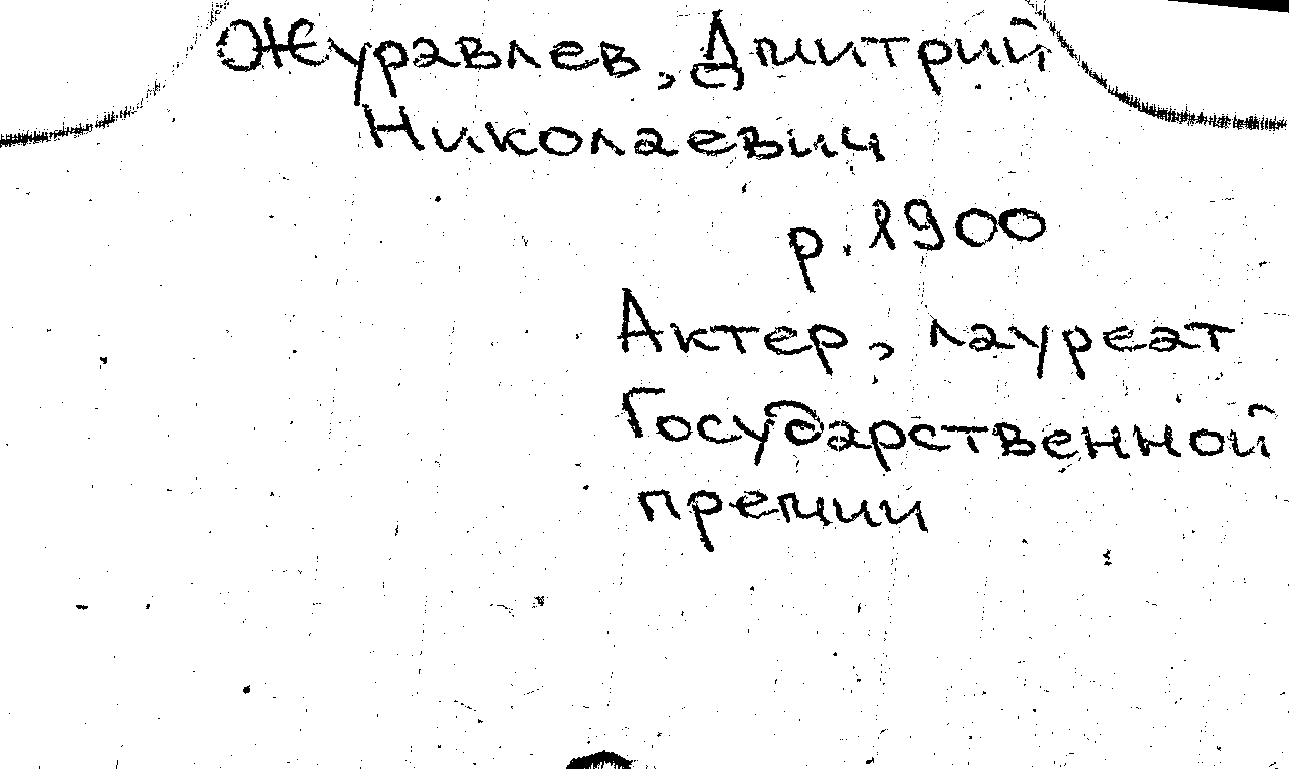 Журавлев, Дмитрий
Николаевич
р. 1900
Актер, лауреат
Государственной
премии